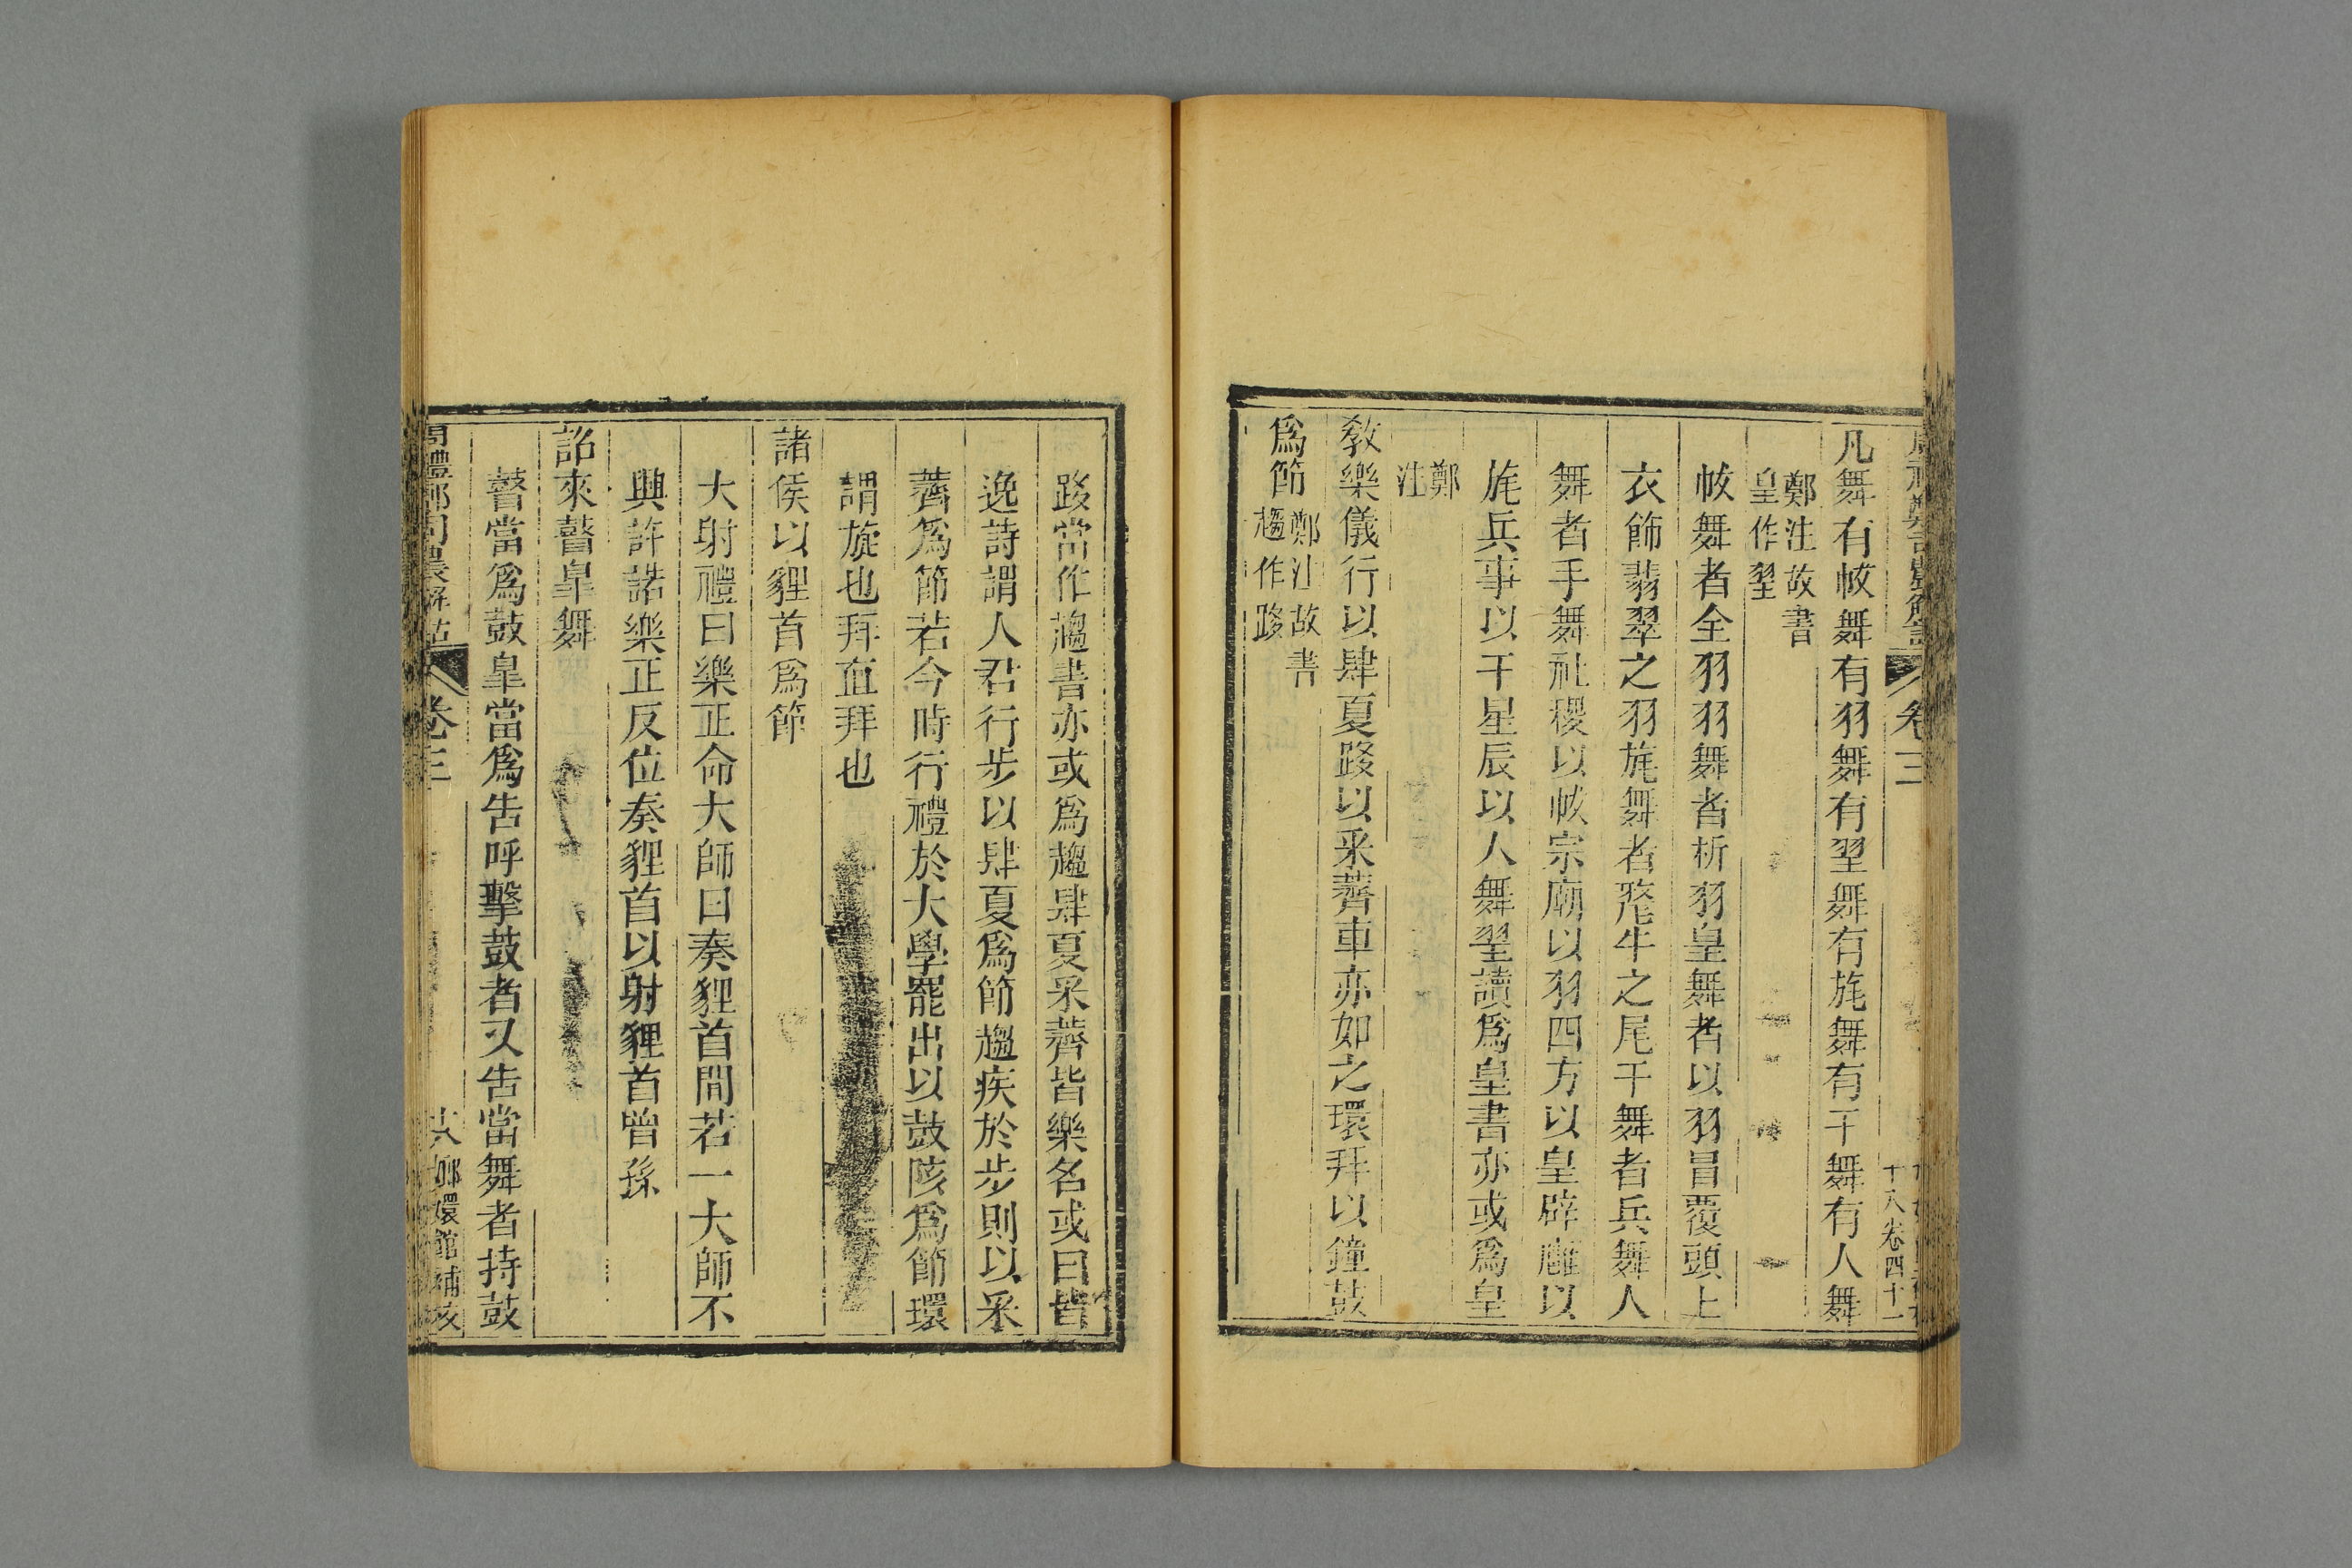 凡舞有帗舞有羽舞有翌舞有旄舞有干舞有人舞
鄭注故書
皇作翌
帗舞者全羽羽舞者析羽皇舞者以羽冒覆頭上
衣飾翡翠之羽旄舞者氂牛之尾干舞者兵舞人
舞者手舞社稷以帗宗廟以羽四方以皇辟廱以
旄兵事以干星辰以人舞翌讀爲皇書亦或爲皇
鄭
注
教樂儀行以肆夏跢以采薺車亦如之環拜以鐘鼓
爲節
鄭注故書
趨作跢
跢當作趨書亦或爲趨肆夏采薺皆樂名或曰皆
逸詩謂人君行步以肆夏爲節趨疾於步則以采
薺爲節若今時行禮於大學罷出以鼓陔爲節環
謂旋也拜直拜也
諸侯以貍首爲節
大射禮曰樂正命大師曰奏貍首間若一大師不
興許諾樂正反位奏貍首以射貍首曾孫
詔來瞽皐舞
瞽當爲鼓皐當爲告呼擊鼓者又告當舞者持鼓
卷三
十八卷四十一
卷三
嫏嬛館補校